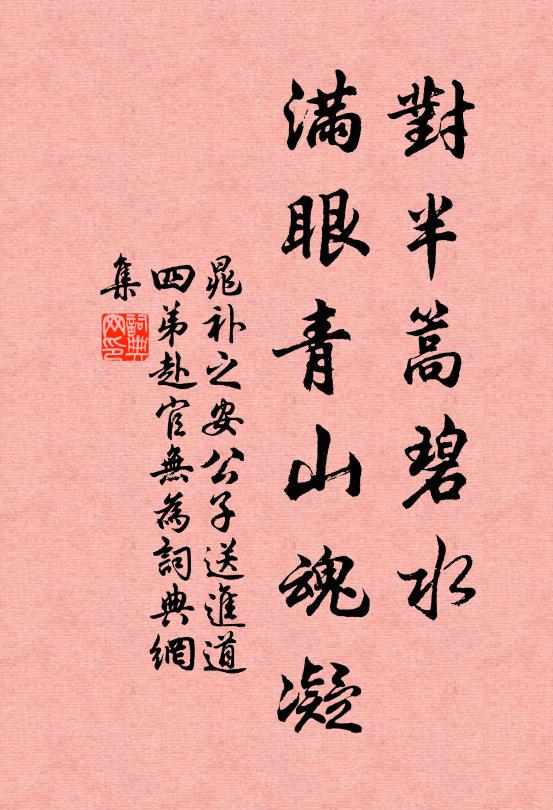 對半篙碧水
滿眼青山魂凝
晁補之安公子送進道
四弟赴官無為詞典網
集
詞典
网印